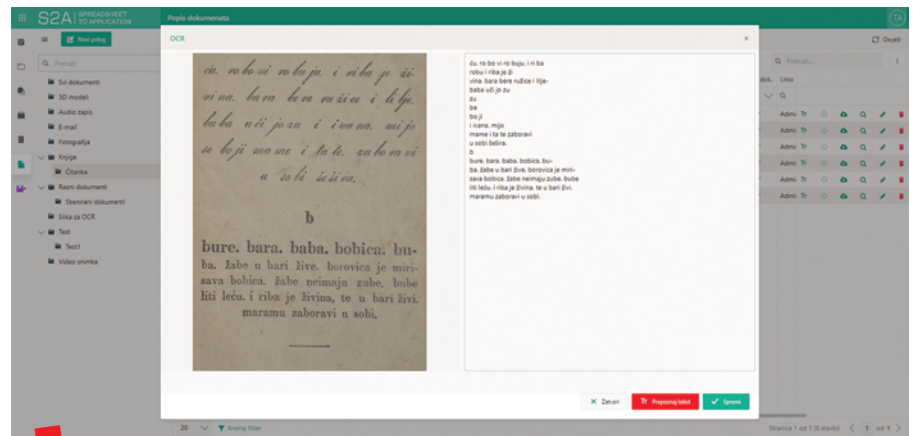 S2A SPREADSHEET
TO APPLICATION
Popis dokumenata
TA
Novi prilog
Osvježi
Pretraži
Svi dokumenti
3D modeli
Audio zapis
E-mail
Fotografija
Knjige
Čitanka
Razni dokumenti
Skenirani dokumenti
Slika za OCR
Test
Test1
Video snimka
OCR
×
ću. robovi robuju. i riba je ži-
vina. bara bere ružice i lilje.
baba uči jozu i ivana. mijo
se boji mame i tate. zaboravi
u sobi šešira.
b
bure. bara. baba. bobica. bu-
ba. žabe u bari žive. borovica je miri-
sava bobica. žabe neimaju zube. bube
liti leću. i riba je živina, te u bari živi.
maramu zaboravi u sobi.
ću. ro bo vi ro buju. i ri ba
robu i riba je ži
vina. bara bere ružice i lije-
baba uči jo zu
zu
be
bo ji
i ivana. mijo
mame i ta te zaboravi
u sobi šešira.
b
bure. bara. baba. bobica. bu-
ba. žabe u bari žive. borovica je miri-
sava bobica. žabe neimaju zube. bube
liti leću. i riba je živina. te u bari živi.
maramu zaboravi u sobi.
Zatvori
Tr Prepoznaj tekst
Spremi
Pretraži...
dok. Unio
Admi Tr
Admi Tr
Admi Tr
Admi Tr
Admi Tr
Admi Tr
20
Kreiraj filter
Stranica 1 od 1 (6 stavki) < 1 od 1 >